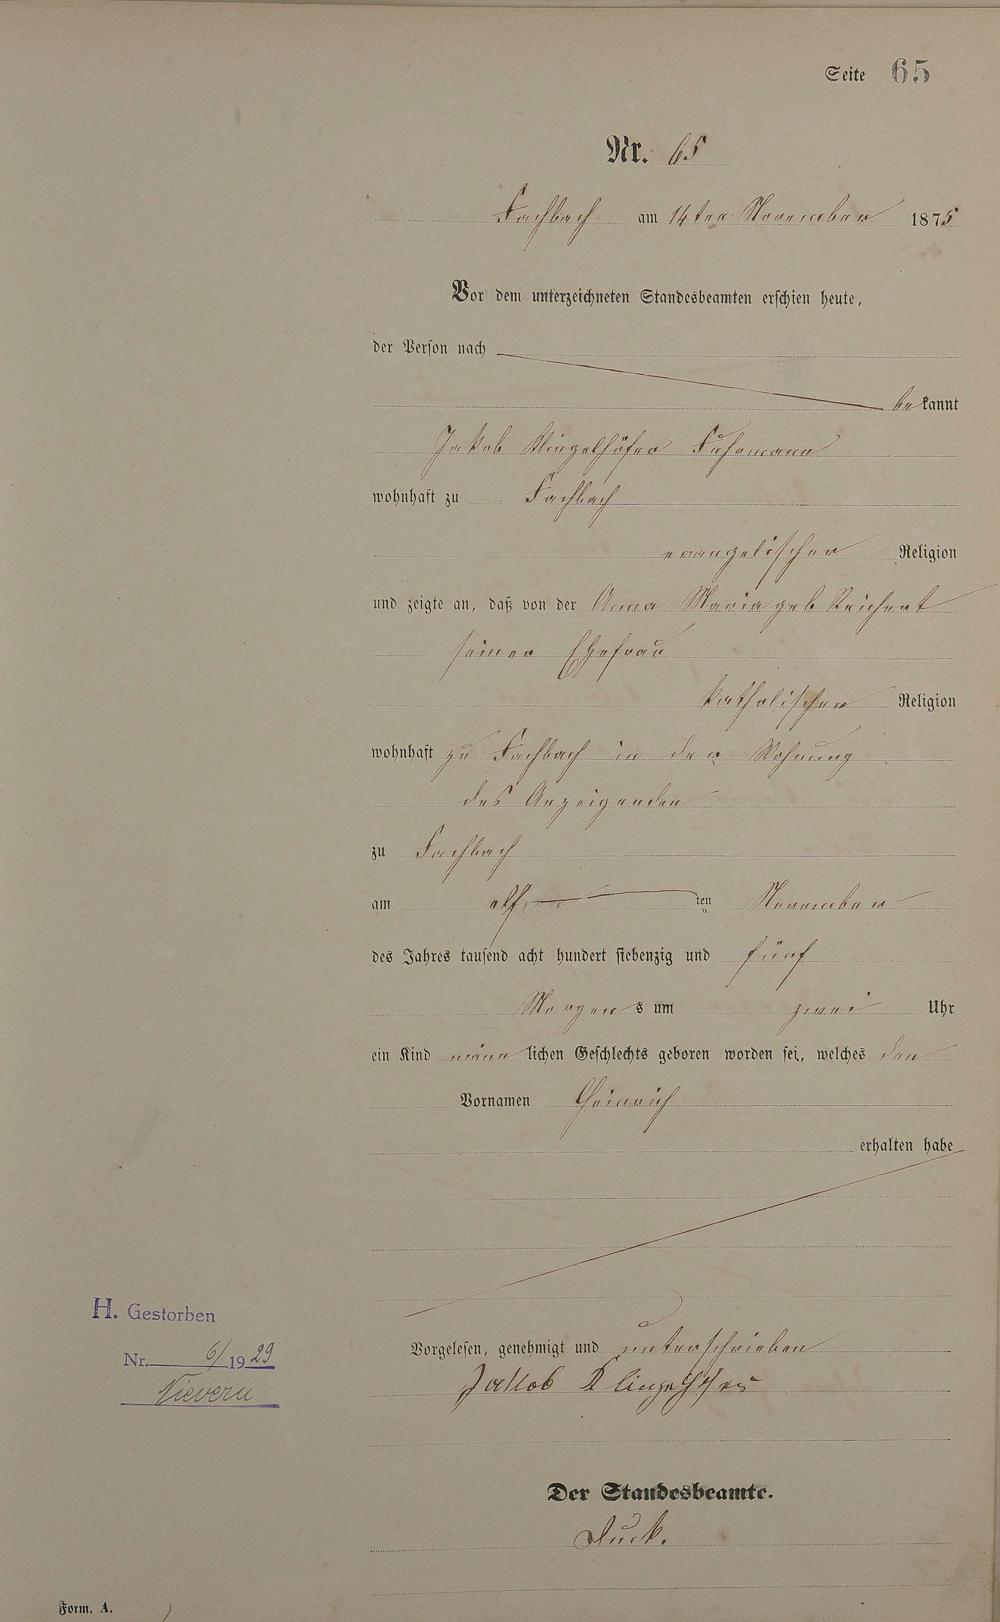 Seite 65
Nr. 65
Fachbach am 14ten November 1875
Vor dem unterzeichneten Standesbeamten erschien heute,
der Person nach
bekannt
Jakob Klingelhöfer Fuhrmann
wohnhaft zu Fachbach
evangelischer Religion
und zeigte an, daß von der Anna Maria geb Reichert
seiner Ehefrau
katholischer Religion
wohnhaft zu Fachbach in der Wohnung
des Anzeigenden
zu Fachbach
am elf ten November
des Jahres tausend acht hundert siebenzig und fünf
Morgens um zwei Uhr
ein Kind männlichen Geschlechts geboren worden sei, welches den
Vornamen Heinrich
erhalten habe
H. Gestorben
Nr. 6/1929
Nievern
Vorgelesen, genehmigt und unterschrieben
Jakob Klingelhöfer
Der Standesbeamte.
Duck.
Form. A.